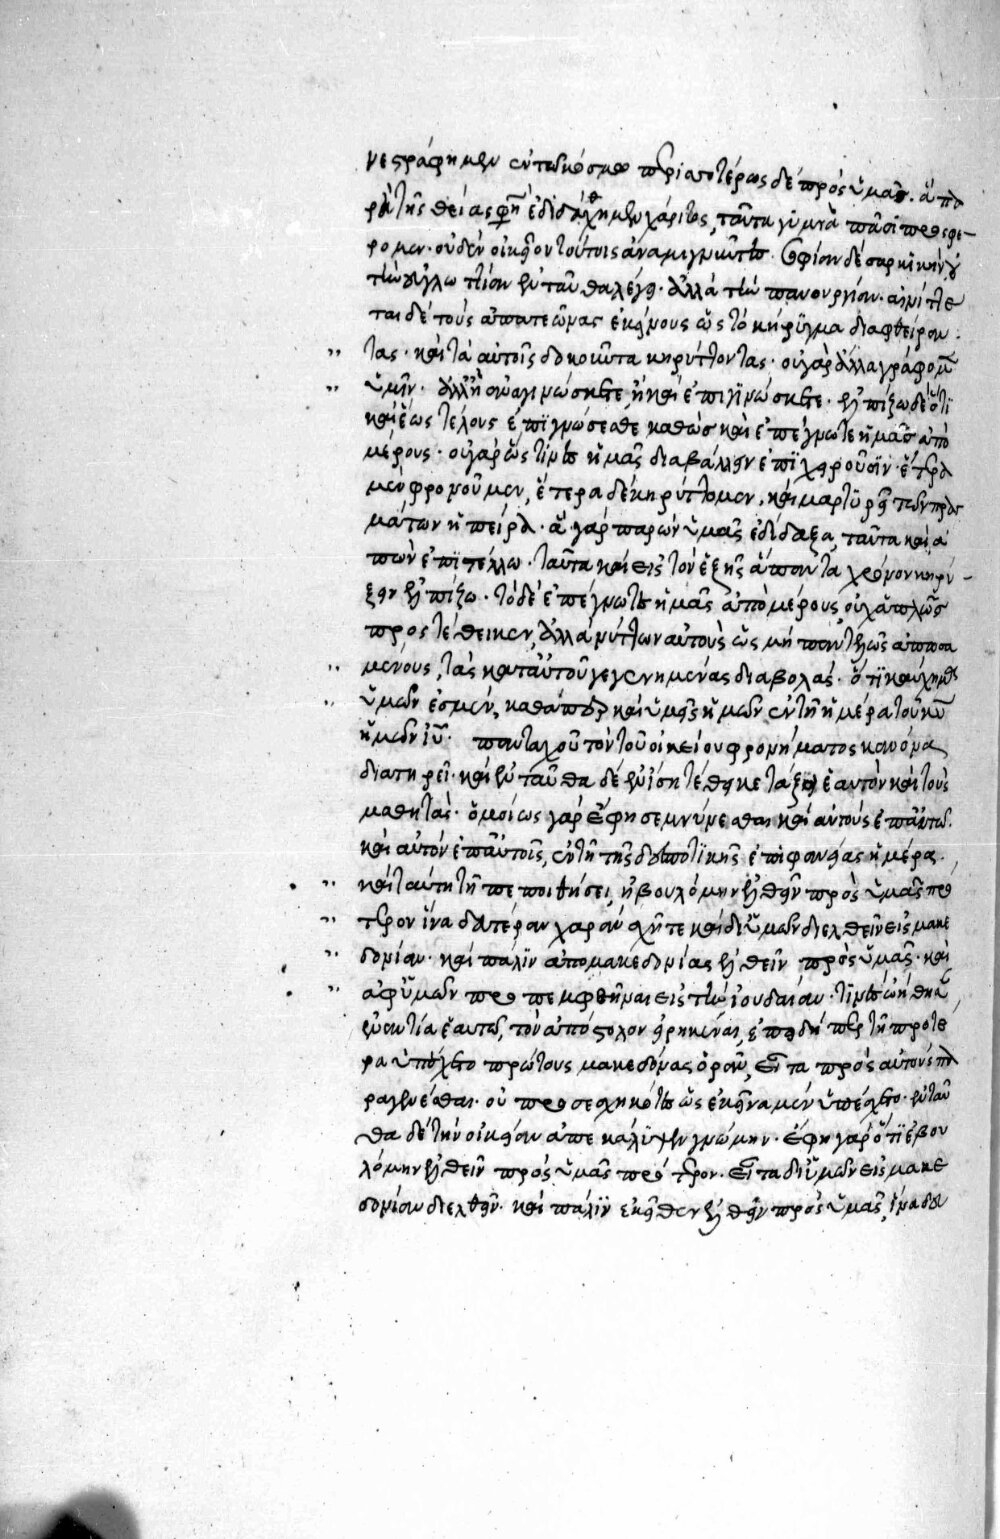 νεστράφημεν ἐν τῶ κόσμω περισσοτέρως δὲ πρὸς ὑμᾶς. ἃ πα
ρὰ τῆς θείας φησὶν ἐδιδάχθημεν χάριτος, ταῦτα γυμνὰ πᾶσι προσφέ-
ρομεν. οὐδὲν οἰκεῖον τούτοις ἀναμιγνῦντες. σοφίαν δὲ σαρκικὴν οὐ
τὴν εὐγλωττίαν ἐνταῦθα λέγει. ἀλλὰ τὴν πανουργίαν. αἰνίττε
ται δὲ τοὺς ἀπατεῶνας ἐκείνους ὡς τὸ κήρυγμα διαφθείρον
τας. καὶ τὰ αὐτοῖς δοκοῦντα κηρύττοντας. οὐ γὰρ ἄλλα γράφομεν
ὑμῖν. ἀλλ' ἢ ἃ ἀναγινώσκετε, ἢ καὶ ἐπιγινώσκετε. ἐλπίζω δὲ ὅτι
καὶ ἕως τέλους ἐπιγνώσεσθε καθὼς καὶ ἐπέγνωτε ἡμᾶς ἀπὸ
μέρους. οὐ γὰρ ὥς τινες ἡμᾶς διαβάλλειν ἐπιχειροῦσιν. ἕτερα
μὲν φρονοῦμεν, ἕτερα δὲ κηρύττομεν. καὶ μαρτυρεῖ τῶν πραγ
μάτων ἡ πεῖρα. ἃ γὰρ παρὼν ὑμᾶς ἐδίδαξα, ταῦτα καὶ ἀ
πὼν ἐπιστέλλω. ταῦτα καὶ εἰς τὸν ἑξῆς ἅπαντα χρόνον κηρύ-
ξειν ἐλπίζω. τὸ δὲ ἐπέγνωτε ἡμᾶς ἀπὸ μέρους, οὐχ ἁπλῶς
προστέθεικεν, ἀλλὰ πλήττων αὐτοὺς ὡς μὴ παντελῶς ἀπωσα
μένους, τὰς κατ' αὐτοῦ γεγενημένας διαβολάς. ὅτι καύχημα
ὑμῶν ἐσμέν, καθάπερ καὶ ὑμεῖς ἡμῶν ἐν τῆ ἡμέρα τοῦ κυ
ἡμῶν ἰυ. πανταχοῦ τὸν τοῦ οἰκείου φρονήματος κανόνα
διατηρεῖ. καὶ ἐνταῦθα δὲ ἐν ἴση τέθεικε τάξει ἑαυτὸν καὶ τοὺς
μαθητάς. ὁμοίως γὰρ ἔφη σεμνύνεσθαι καὶ αὐτοὺς ἐπ' αὐτῶ.
καὶ αὐτὸν ἐπ' αὐτοῖς, ἐν τῆ τῆς δεσποτικῆς ἐπιφανείας ἡμέρα.
καὶ ταύτη τῆ πεποιθήσει, ἠβουλόμην ἐλθεῖν πρὸς ὑμᾶς πρό
τερον ἵνα δευτέραν χαρὰν ἔχητε καὶ δι' ὑμῶν διελθεῖν εἰς μακε
δονίαν. καὶ πάλιν ἀπὸ μακεδονίας ἐλθεῖν πρὸς ὑμᾶς. καὶ
ἀφ' ὑμῶν προπεμφθῆναι εἰς τὴν ἰουδαίαν. τινὲς ὠήθησαν
ἐναντία ἑαυτῶ, τὸν ἀπόστολον εἰρηκέναι, ἐπειδήπερ τῆ προτέ
ρα ὑπέσχετο πρώτους μακεδόνας ὁρᾶν, εἶτα πρὸς αὐτοὺς πα
ραγενέσθαι. οὐ προσεσχηκότες ὡς ἐκεῖνα μὲν ὑπέσχετο. ἐνταῦ
θα δὲ τὴν οἰκείαν ἀπεκάλυψεν γνώμην. ἔφη γὰρ ὅτι ἐβου
λόμην ἐλθεῖν πρὸς ὑμᾶς πρότερον. εἶτα δι' ὑμῶν εἰς μακε
δονίαν διελθεῖν. καὶ πάλιν ἐκεῖθεν ἐλθεῖν πρὸς ὑμᾶς, ἵνα δευ